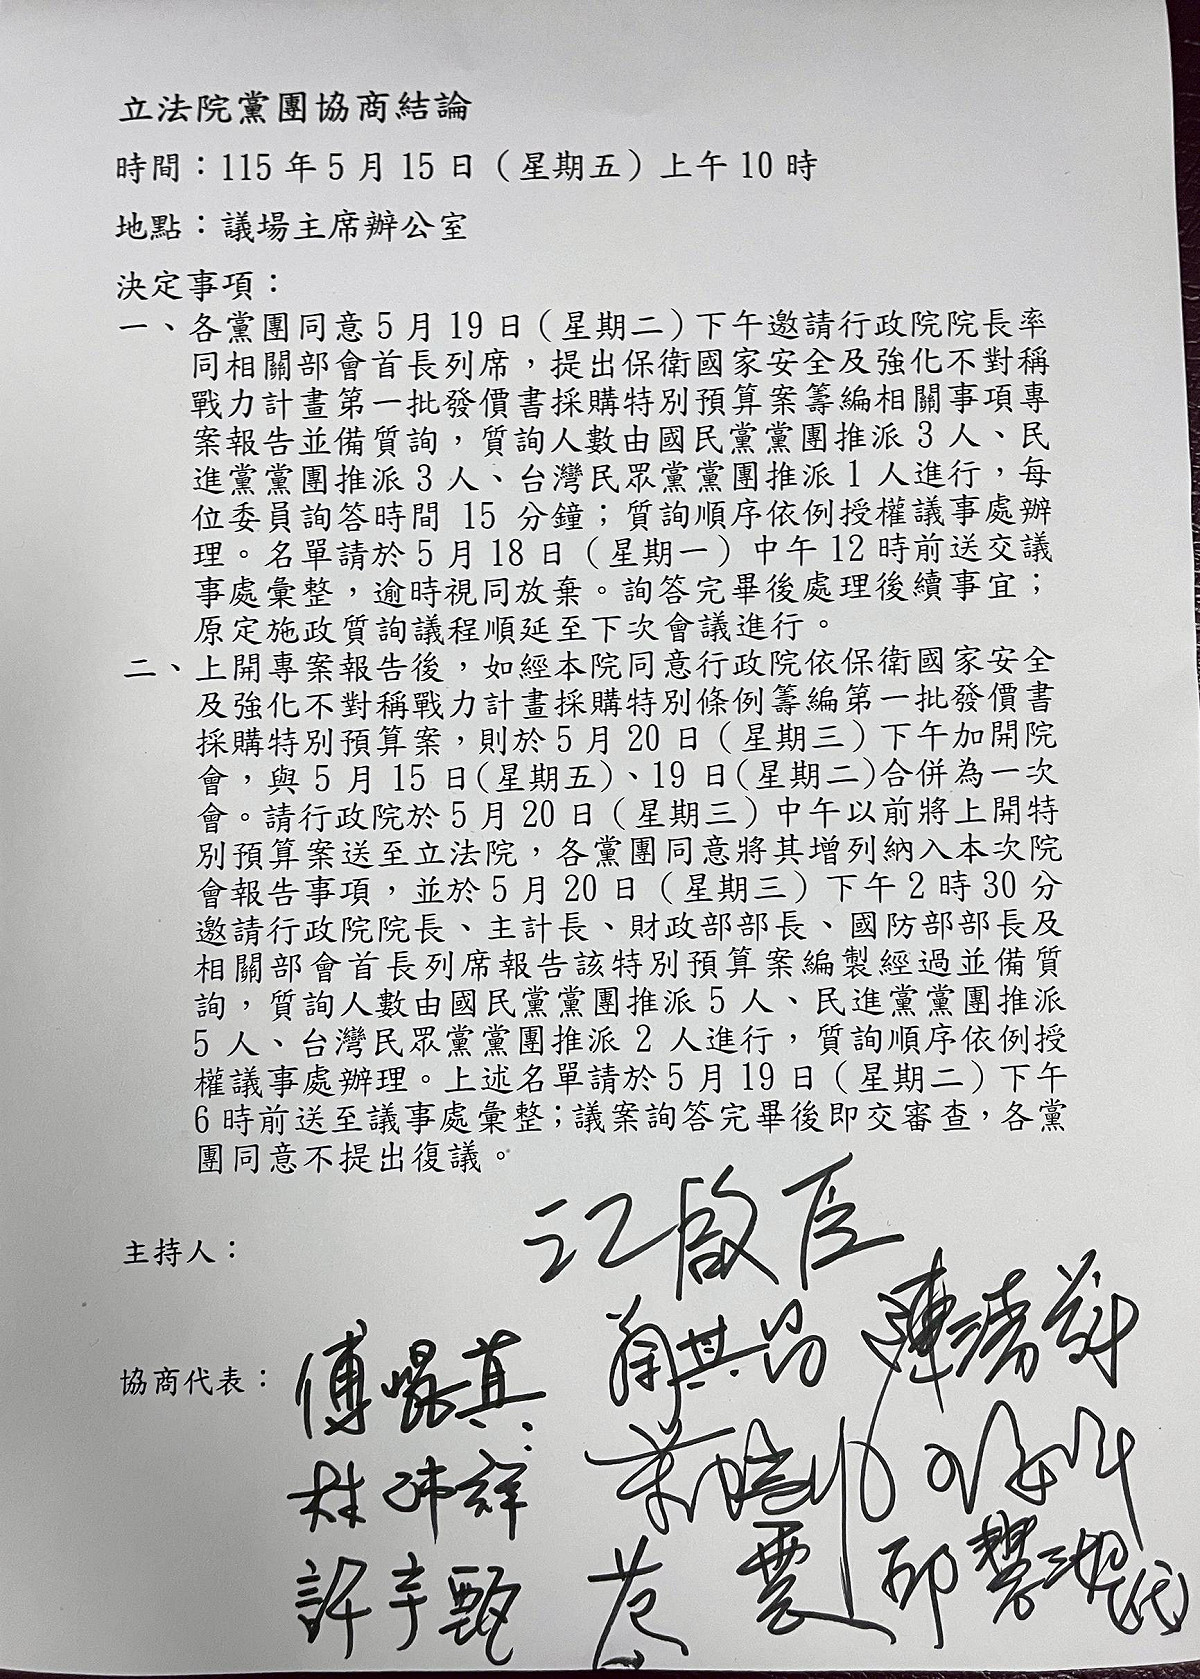 立法院黨團協商結論
時間：115年5月15日（星期五）上午10時
地點：議場主席辦公室
決定事項：
一、各黨團同意5月19日（星期二）下午邀請行政院院長率
同相關部會首長列席，提出保衛國家安全及強化不對稱
戰力計畫第一批發價書採購特別預算案籌編相關事項專
案報告並備質詢，質詢人數由國民黨黨團推派3人、民
進黨黨團推派3人、台灣民眾黨黨團推派1人進行，每
位委員詢答時間 15 分鐘；質詢順序依例授權議事處辦
理。名單請於5月18日（星期一）中午12時前送交議
事處彙整，逾時視同放棄。詢答完畢後處理後續事宜；
原定施政質詢議程順延至下次會議進行。
二、上開專案報告後，如經本院同意行政院依保衛國家安全
及強化不對稱戰力計畫採購特別條例籌編第一批發價書
採購特別預算案，則於5月20日（星期三）下午加開院
會，與5月15日(星期五)、19日(星期二)合併為一次
會。請行政院於5月20日（星期三）中午以前將上開特
別預算案送至立法院，各黨團同意將其增列納入本次院
會報告事項，並於5月20日（星期三）下午2時30分
邀請行政院院長、主計長、財政部部長、國防部部長及
相關部會首長列席報告該特別預算案編製經過並備質
詢，質詢人數由國民黨黨團推派5人、民進黨黨團推派
5人、台灣民眾黨黨團推派2人進行，質詢順序依例授
權議事處辦理。上述名單請於5月19日（星期二）下午
6時前送至議事處彙整；議案詢答完畢後即交審查，各黨
團同意不提出復議。
主持人：
江啟臣
協商代表：
傅崐萁 蔡其昌 陳清龍
林沛祥
許宇甄 范雲 邱慧洳(代)